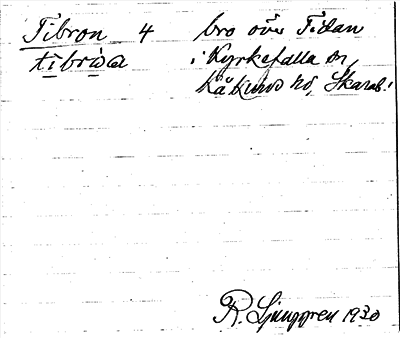 Tibron 4 bro över Tidan
tibroa i Kyrkefalla sn,
Kåkinds hd, Skarab.
R. Ljunggren 1930